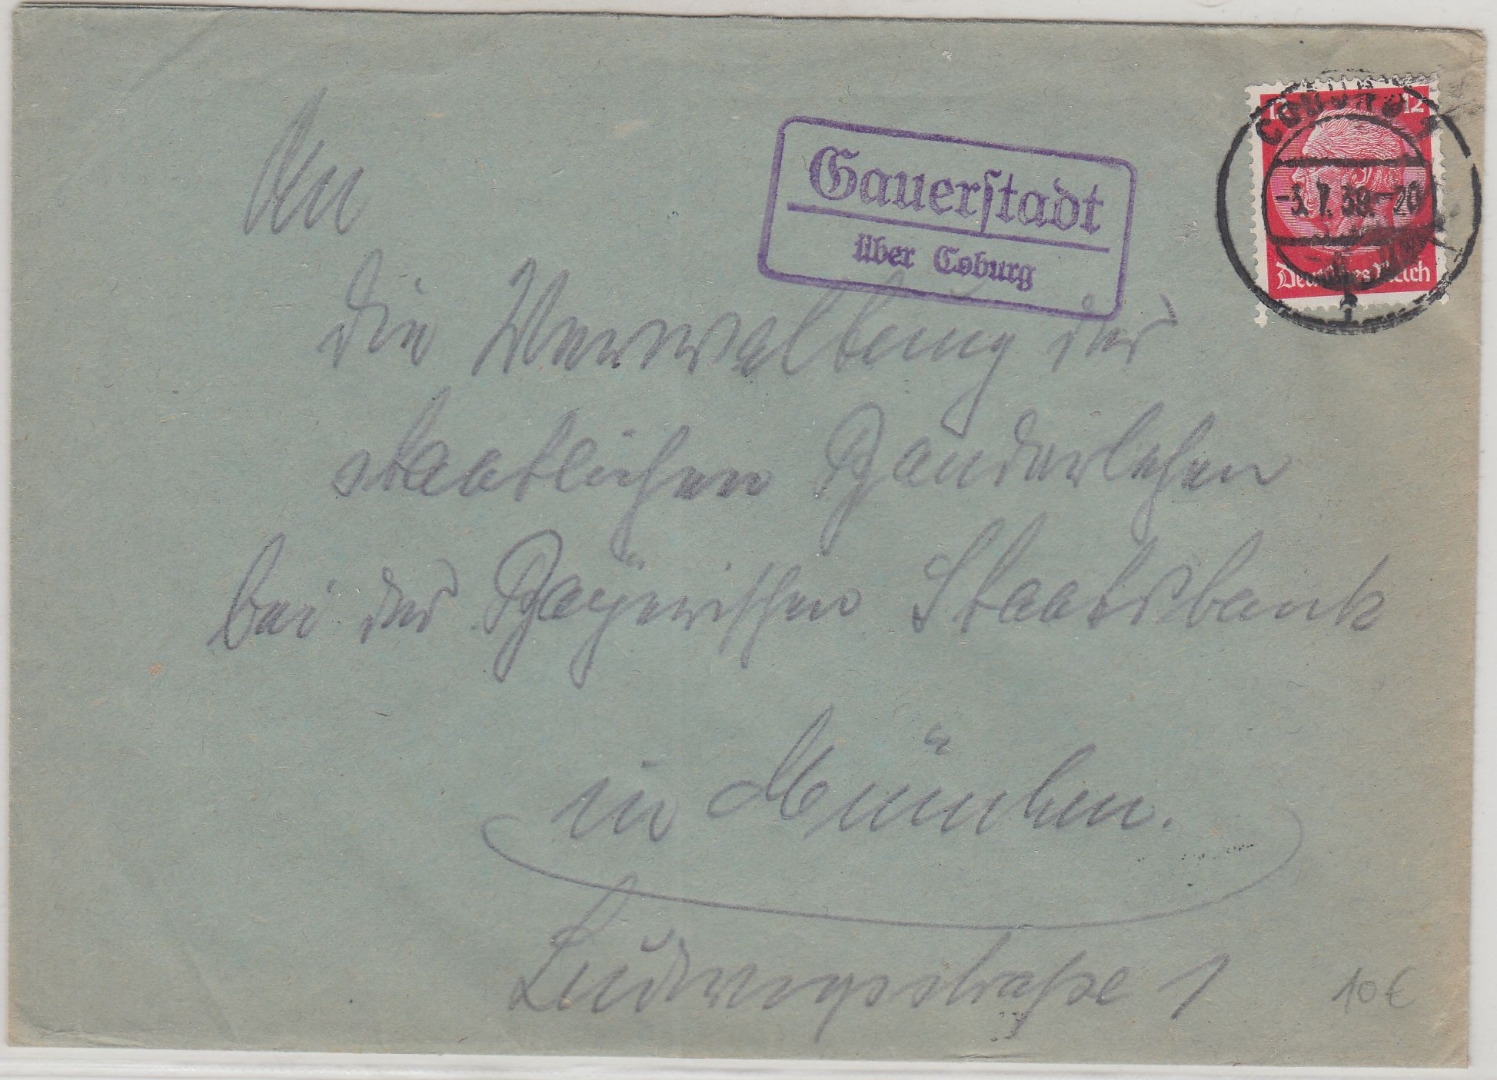 Gauerstadt
über Coburg
COBURG
-5.1.39.-20
12
Deutsches Reich
An
die Verwaltung der
staatlichen Baudarlehen
bei der Bayerischen Staatsbank
in München.
Ludwigstraße 1
10€